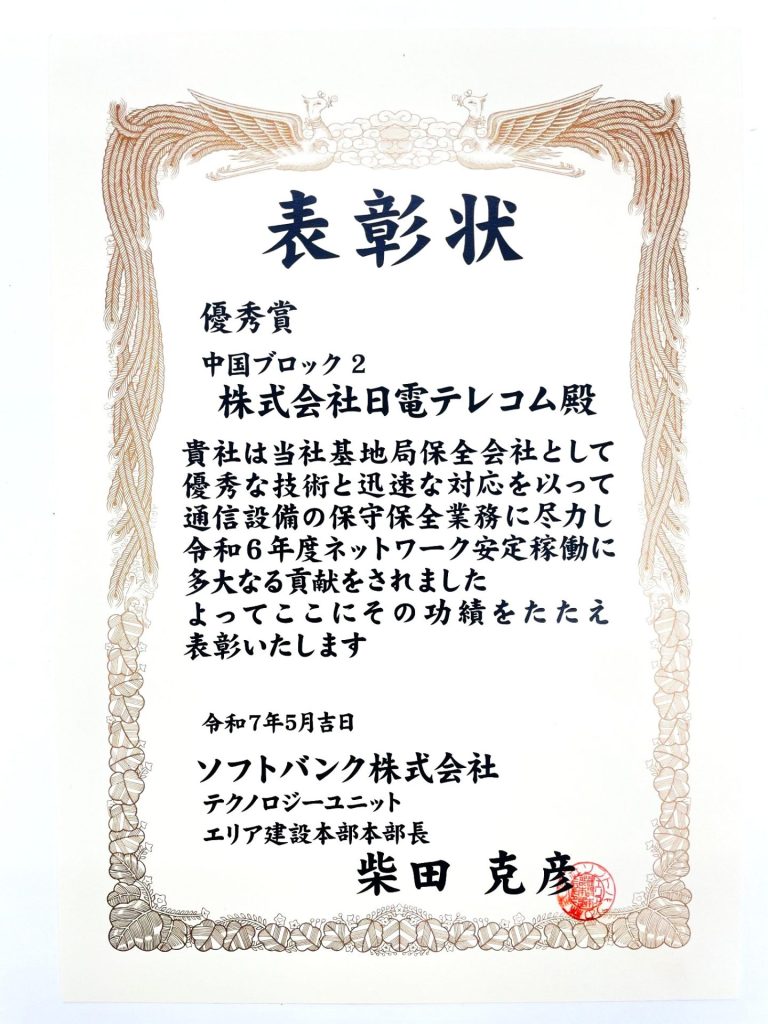 表彰状
優秀賞
中国ブロック2
株式会社日電テレコム殿
貴社は当社基地局保全会社として
優秀な技術と迅速な対応を以って
通信設備の保守保全業務に尽力し
令和6年度ネットワーク安定稼働に
多大なる貢献をされました
よってここにその功績をたたえ
表彰いたします
令和7年5月吉日
ソフトバンク株式会社
テクノロジーユニット
エリア建設本部本部長
柴田 克彦